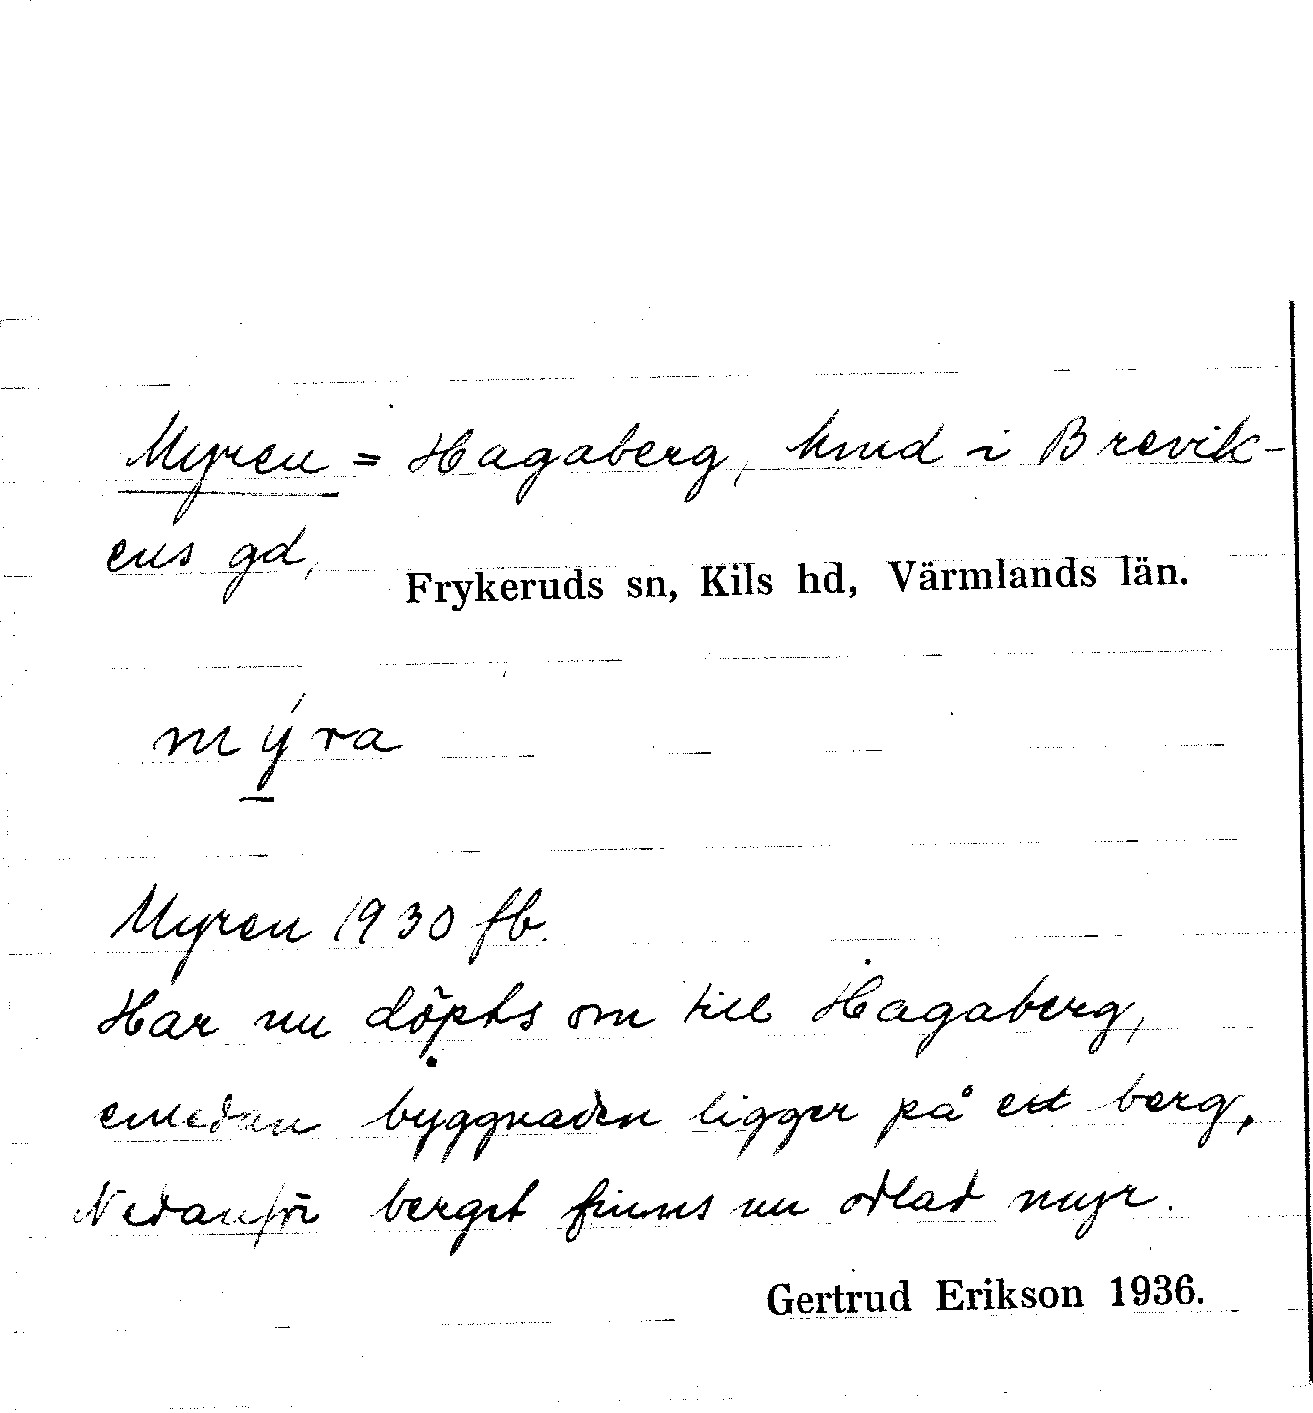 Myren = Hagaberg, hmd i Brevik-
ens gd,
Frykeruds sn, Kils hd, Värmlands län.
mýra
Myren 1930 fb.
Har nu döpts om till Hagaberg,
emedan byggnaden ligger på ett berg,
Nedanför berget finns nu odlad myr.
Gertrud Erikson 1936.